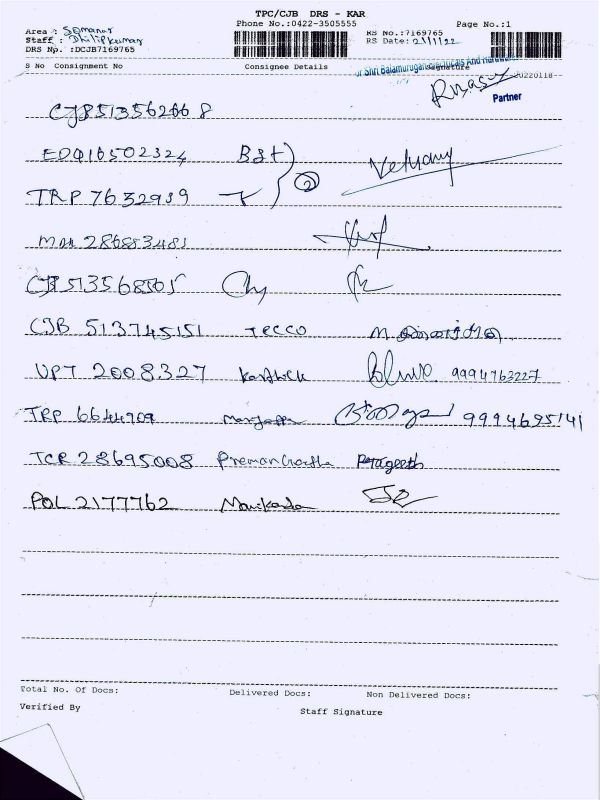 TPC/CJB DRS - KAR
Phone No.:0422-3505555 Page No.:1
Area : Somanur RS No.:7169765
Staff : Dhilipkumar RS Date: 21/1/22
DRS No. :DCJB7169765
S No Consignment No Consignee Details Signature
Shri Balamurugan Chemicals And Hardware
20220118-
Partner
CJB513562668
EDQ16502324 BSt
TRP 7632939 2
MDU 286853483
CJB513568505
CJB 513745151 Tecco
UPT 2008327 Karthick 9994763227
TRP 6644909 9994695141
TCR 28695008 Prageeth
POL 2177762 Manikanda
Total No. Of Docs: Delivered Docs: Non Delivered Docs:
Verified By
Staff Signature